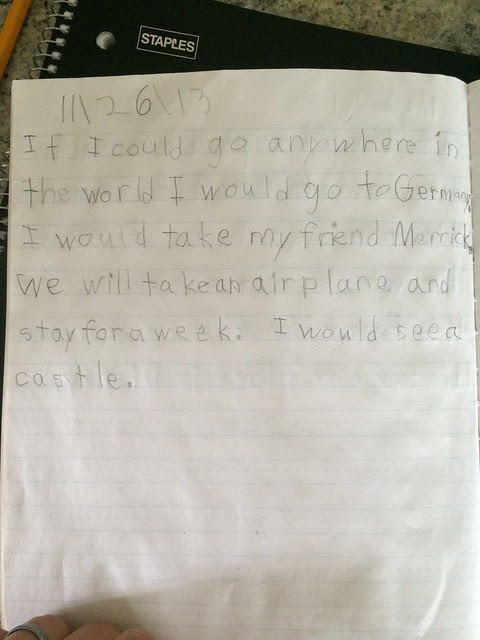 STAPLES
11\26\13
If I could go anywhere in
the world I would go to Germany.
I would take my friend Merrick.
We will take an airplane and
stay for a week. I would see a
castle.